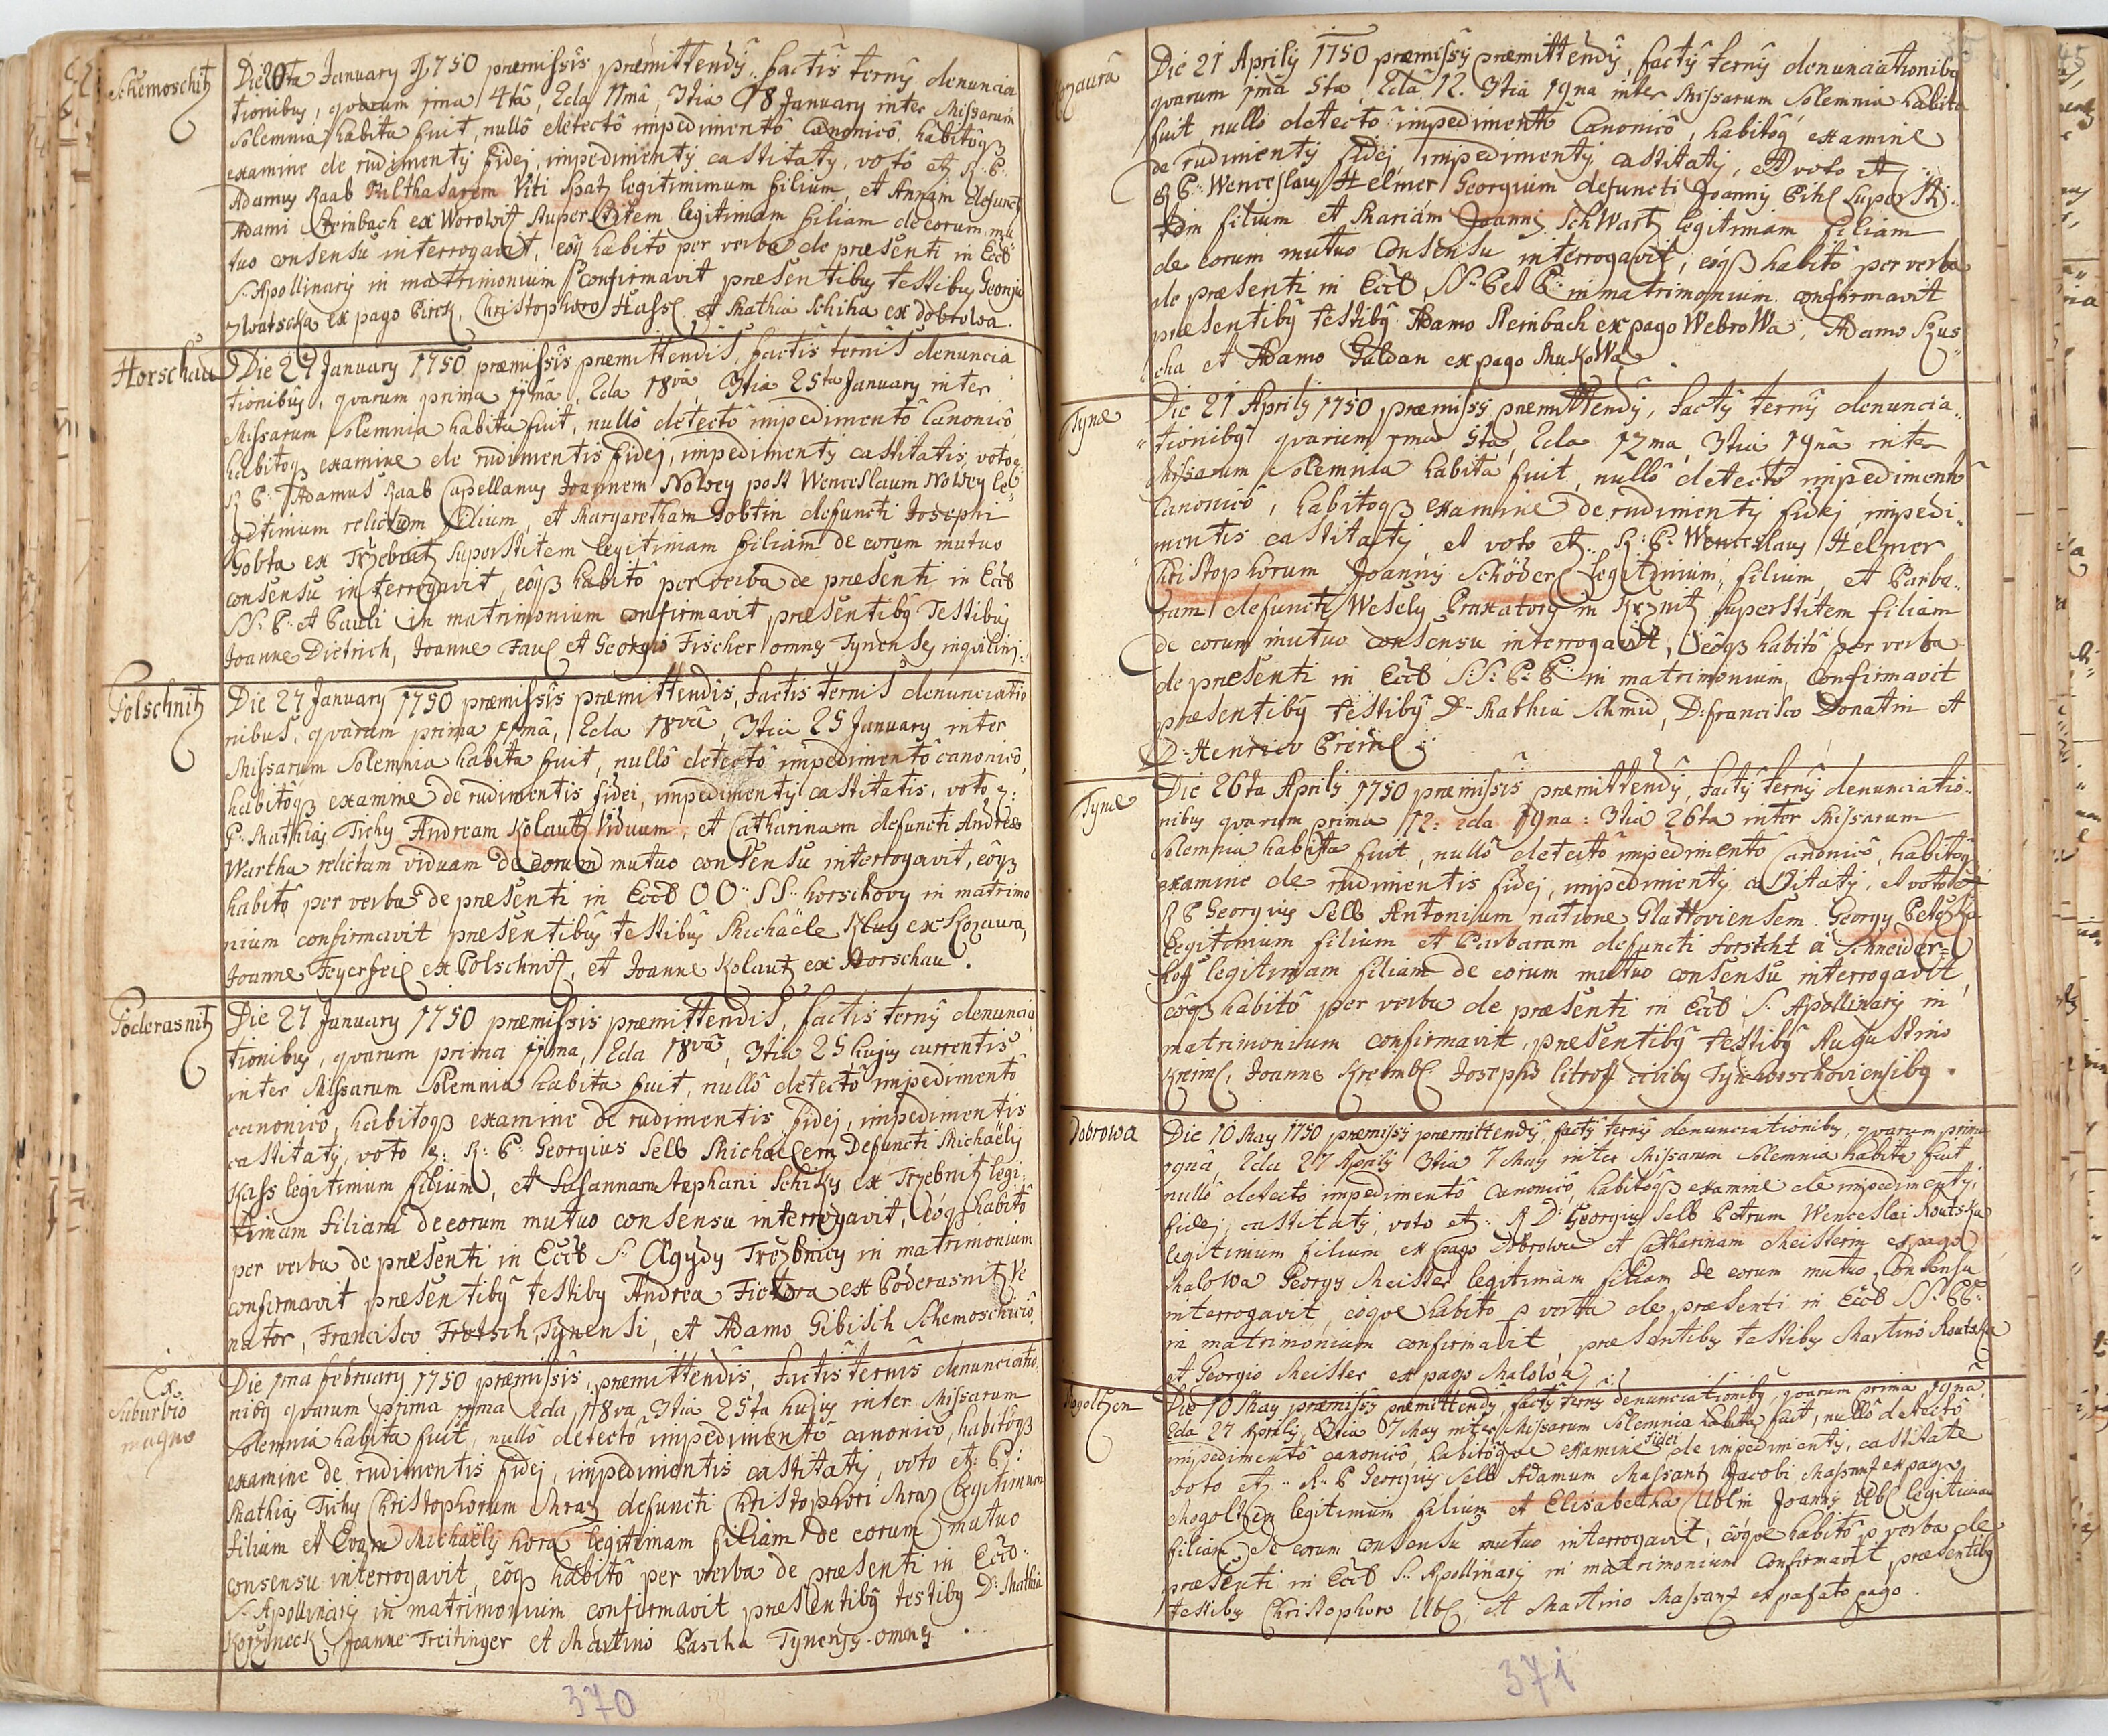 Schemoschitz
Die 20ta January 1750 præmissis præmittendÿ, factis ternÿ denuncia
tionibus, qvarum 1ma 4ta, 2da 11mâ, 3tia 18 January inter Missarum
Solemnia habita fuit, nullô detectô impedimentô Canonicô, habitôqß
examine de rudimentÿ fidej, impedimentÿ castitatÿ, votô etz R: P:
Adamus Raab Balthasarem Viti Spatz legitimimum filium, et Annam defuncti
Adami Steinbach ex Worowitz Superstitem legitimam filiam de eorum mu
tuo consensu interrogavit, eôqß habitô per verba de præsenti in Eccl
S: Apollinarÿ in matrimonium confirmavit præsentibus testibus Georgio
Watscka ex pago Pirck, Christophoro Hassl et Mathia Schiha ex dobrowa.
Horschau
Die 27 January 1750 præmissis præmittendis, factis ternis denuncia
tionibus, qvarum prima 11mâ, 2da 18vâ, 3tia 25ta January inter
Missarum Solemnia habita fuit, nullô detectô impedimentô Canonicô
habitoqß examine de rudimentis fidej, impedimentÿ castitatis, voto e:
R P: Adamus Raab Capellanus Joannem Nolvey post Wenceslaum Nolvey le
gitimum relictum filium, et Margaretham Gobtin defuncti Josephi
Gobta ex Trzebnitz Superstitem legitimam filiam de eorum mutuo
consensu interrogavit, eôqß habitô per verba de præsenti in Eccl
SS: P: et Pauli in matrimonium confirmavit præsentibÿ Testibus
Joanne Dietrich, Joanne Faul et Georgio Fischer omnes Tynenses inqvilini:
Polschnitz
Die 27 January 1750 præmissis præmittendis, factis ternis denunciatio
nibus, qvarum prima 11mâ, 2da 18vâ, 3tia 25 January inter
Missarum Solemnia habita fuit, nullô detectô impedimentô canonicô,
habitôqß examine de rudimentis fidei, impedimentÿ castitatis, voto e:
P: Mathias Tichy Andream Kolautz Viduum, et Catharinam defuncti Andreæ
Wartha relictam viduam de eorum mutuo consensu interrogavit, eôqß
habitô per verba de præsenti in Eccl OO: SS: horschovÿ in matrimo
nium confirmavit præsentibus testibus Michaële Klug ex Kozaura,
Joanne Feyerfeil ex Polschnitz, et Joanne Kolautz ex Horschau.
Poderasnitz
Die 27 January 1750 præmissis præmittendis, factis ternÿ denuncia
tionibus, qvarum prima 11ma, 2da 18vâ, 3tia 25 hujus currentis
inter Missarum Solemnia habita fuit, nullô detectô impedimentô
canonicô, habitoqß examine de rudimentis fidej, impedimentis
castitatÿ, voto e: R: P: Georgius Selb Michaëlem Defuncti Michaëlis
Kass legitimum filium, et Susannam Stephani Schiky ex Trzebnitz legi
timam filiam de eorum mutuo consensu interrogavit, eôqß habitô
per verba de præsenti in Eccl S: Ægydÿ Trzebnicÿ in matrimonium
confirmavit præsentibÿ testibÿ Andrea Fictora ex Poderasnitz Ve
nator, Francisco Frotsch Tynensi, et Adamo Gibisch Schemoschicio
Ex
Suburbio
magno
Die 1ma february 1750 præmissis, præmittendis, factis ternis denunciatio
nibÿ qvarum prima 11ma 2da 18va 3tia 25ta hujus inter Missarum
Solemnia habita fuit, nullô detectô impedimentô canonicô, habitôqß
examine de rudimentis fidej, impedimentis castitatÿ, voto et: P:
Mathias Tichy Christophorum Mraz defuncti Christophori Mraz legitimum
filium et Evam Michaëlÿ hora legitimam filiam de eorum mutuo
consensu interrogavit, eôqß habitô per verba de præsenti in Eccl
S: Apollinarÿ in matrimonium confirmavit præsentibÿ testibÿ D: Mathia
Korzineck, Joanne Treitinger et Martino Pascha Tynensÿ omnes.
370
Kozaura
Die 21 Aprilÿ 1750 præmissÿ præmittendÿ, factÿ ternÿ denunciationibÿ
qvarum 1ma 5ta, 2da 12. 3tia 19na inter Missarum Solemnia habita
fuit nullo detectô impedimentô Canonicô, habitôq examine
de rudimentÿ fidej impedimentÿ castitatÿ, et voto etz
R P: Wenceslaus Helmer Georgium defuncti Joannÿ Pihl Super Sti
tem filium et Mariam Joannis Schwartz legitimam filiam
de eorum mutuo Consensu interrogavit, eôqß habitô per verba
de præsenti in Eccl SS: P et P: in matrimonium confirmavit
præsentibÿ testibÿ Adamo Steinbach ex pago Webrowa, Adamo Kus
cha et Adamo Guldan ex pago Mukowa.
Tyne
Die 21 Aprilÿ 1750 præmissÿ præmittendÿ, factÿ ternÿ denuncia
tionibÿ qvarum 1ma 5ta, 2da 12ma, 3tia 19nâ inter
Missarum Solemnia habita fuit, nullô detectô impedimentô
Canonicô, habitoqß examine de rudimentÿ fidej impedi
mentis castitatÿ, et voto etz: R: P: Wenceslaus Helmer
Christophorum Joannis Schöderl legitimum filium, et Barba
ram defuncti Wesely Braxatorÿ in Krznitz Superstitem filiam
de eorum mutuo consensu interrogavit, eôqß habitô per verba
de præsenti in Eccl S:S: P: P: in matrimonium Confirmavit
præsentibÿ testibÿ D: Mathia Schmid, D: francisco Donatin et
D: Henrico Preinl
Tyne
Die 26ta Aprilÿ 1750 præmissis præmittendÿ, factÿ ternÿ denunciatio
nibus qvarum prima 12: 2da 19na: 3tia 26ta inter Missarum
Solemnia habita fuit, nullô detectô impedimentô Canonicô, habitôq
examine de rudimentis fidej, impedimentÿ castitatÿ, et voto et
R P Georgius Selb Antonium natione Glattoviensem Georgÿ Petrzka
legitimum filium et Barbaram defuncti forstcht a Schneider
hoff legitimam filiam de eorum mutuo consensu interrogavit,
eôqß habitô per verba de præsenti in Eccl S: Apollinarÿ in
matrimonium confirmavit, præsentibÿ testibÿ Augustino
Kreml, Joanne Krembl Josepho Citroff civibÿ Tynhorschoviensibÿ.
Dobrowa
Die 10 May 1750 præmissÿ præmittendÿ, factÿ ternÿ denunciationibÿ, qvarum prima
19na, 2da 27 Aprilÿ 3tia 7 May inter Missarum Solemnia habita fuit
nullô detecto impedimentô canonicô, habitôqß examine de impedimentÿ,
fidej, castitatÿ, voto et: R D: Georgius Selb Petrum Wenceslai Koutska
legitimum filium ex pago Dobrowa et Catharinam Meisterin ex pago
Malowa Georgÿ Meister legitimam filiam de eorum mutuo Consensu
interrogavit, eôqve habitô p verba de præsenti in Eccl SS: PP:
in matrimonium confirmavit, præsentibus testibus Martino Koutska
et Georgio Meister ex pago Malowa
Mogoltzen
Die 10 May præmissÿ præmittendÿ factÿ ternÿ denunciationibÿ, qvarum prima 19na
2da 27 Aprilÿ, 3tia 7 May inter Missarum Solemnia habita fuit, nullô detectô
impedimentô canonicô, habitôqve examine fidei de impedimentÿ, castitate
voto etz: R: P Georgius Selb Adamum Massantz Jacobi Massantz ex pago
Mogoltzen legitimum filium et Elisabetha Ublin Joannÿ Ubl legitimam
filiam de eorum consensu mutuo interrogavit, eôqve habitô p verba de
præsenti in Eccl S: Apollinarÿ in matrimonium Confirmavit præsentibÿ
testibus Christophoro Ubl, et Martino Massantz ex pafato pago.
371